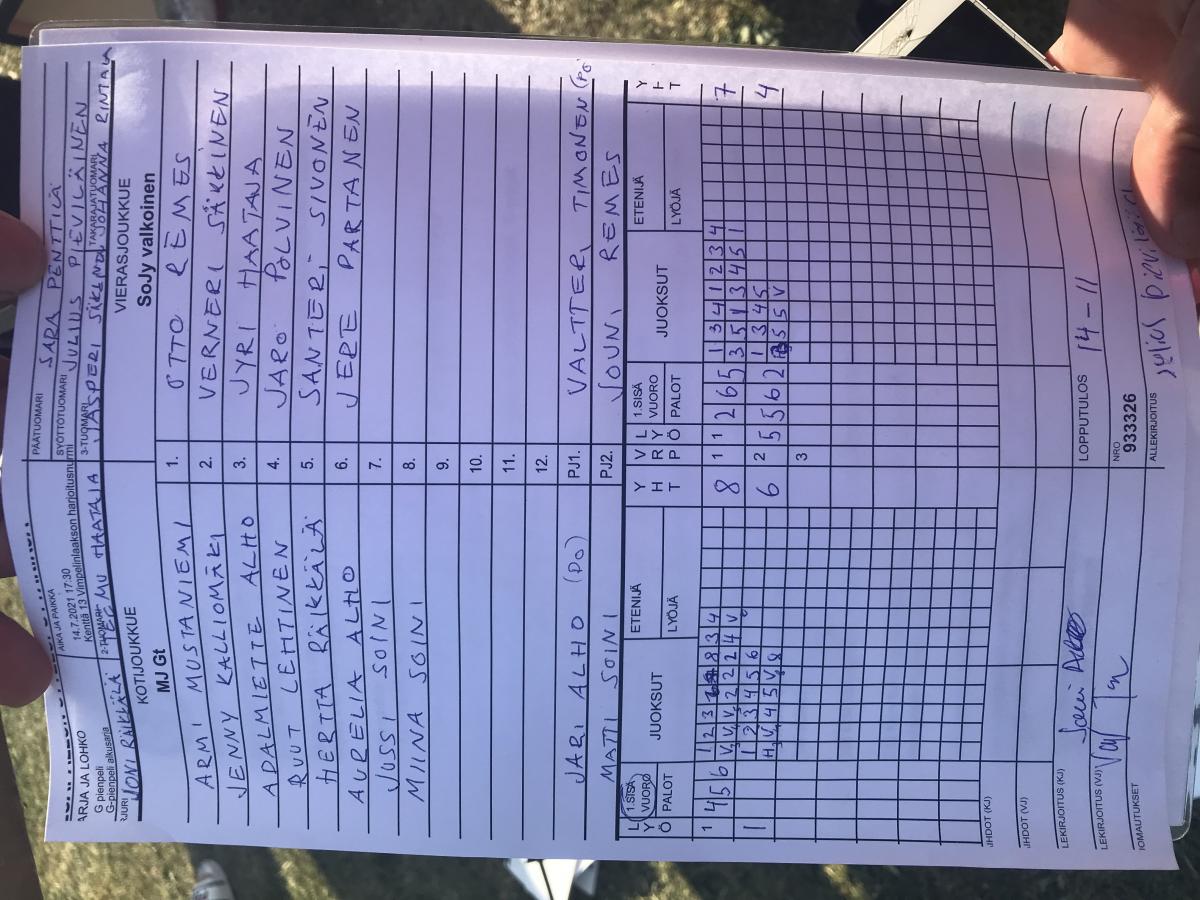 ARJA JA LOHKO
G pienpeli
G-pienpeli alkusarja
AIKA JA PAIKKA
14.7.2021 17:30
Kenttä 13 Vimpelinlaakson harjoitusnurmi
PÄÄTUOMARI SARA PENTTILÄ
SYÖTTÖTUOMARI JULIUS PIEVILÄINEN
JURI JONI RÄIKKÄLÄ
2-TUOMARI TEEMU HAATAJA
3-TUOMARI JASPERI SÄKKINEN
TAKARAJATUOMARI JOHANNA RINTALA
KOTIJOUKKUE VIERASJOUKKUE
MJ Gt SoJy valkoinen
ARMI MUSTANIEMI 1. OTTO REMES
JENNY KALLIOMÄKI 2. VERNERI SÄKKINEN
ADALMIETTE ALHO 3. JYRI HAATAJA
RUUT LEHTINEN 4. JARO POLVINEN
HERTTA RÄIKKÄLÄ 5. SANTERI SIVONEN
AURELIA ALHO 6. JERE PARTANEN
JUSSI SOINI 7.
MIINA SOINI 8.
9.
10.
11.
12.
JARI ALHO (PO) PJ1. VALTTERI TIMONEN (PO)
MATTI SOINI PJ2. JOUNI REMES
L Y Ö 1.SISÄ VUORO PALOT JUOKSUT ETENIJÄ LYÖJÄ Y H T V R P L Y Ö 1.SISÄ VUORO PALOT JUOKSUT ETENIJÄ LYÖJÄ Y H T
1 4 5 6 1 2 3 8 3 4 8 1 1 2 6 5 1 3 4 1 2 3 4 7
V V V 2 2 2 4 V 3 5 1 3 4 5 1
1 1 2 3 4 5 6 6 2 5 5 6 2 1 3 4 5 4
H V 4 5 V 8 5 5 V
3
JHDOT (KJ)
JHDOT (VJ)
LEKIRJOITUS (KJ)
LOPPUTULOS 14-11
LEKIRJOITUS (VJ)
NRO
933326
IOMAUTUKSET
ALLEKIRJOITUS Julius Pieviläinen